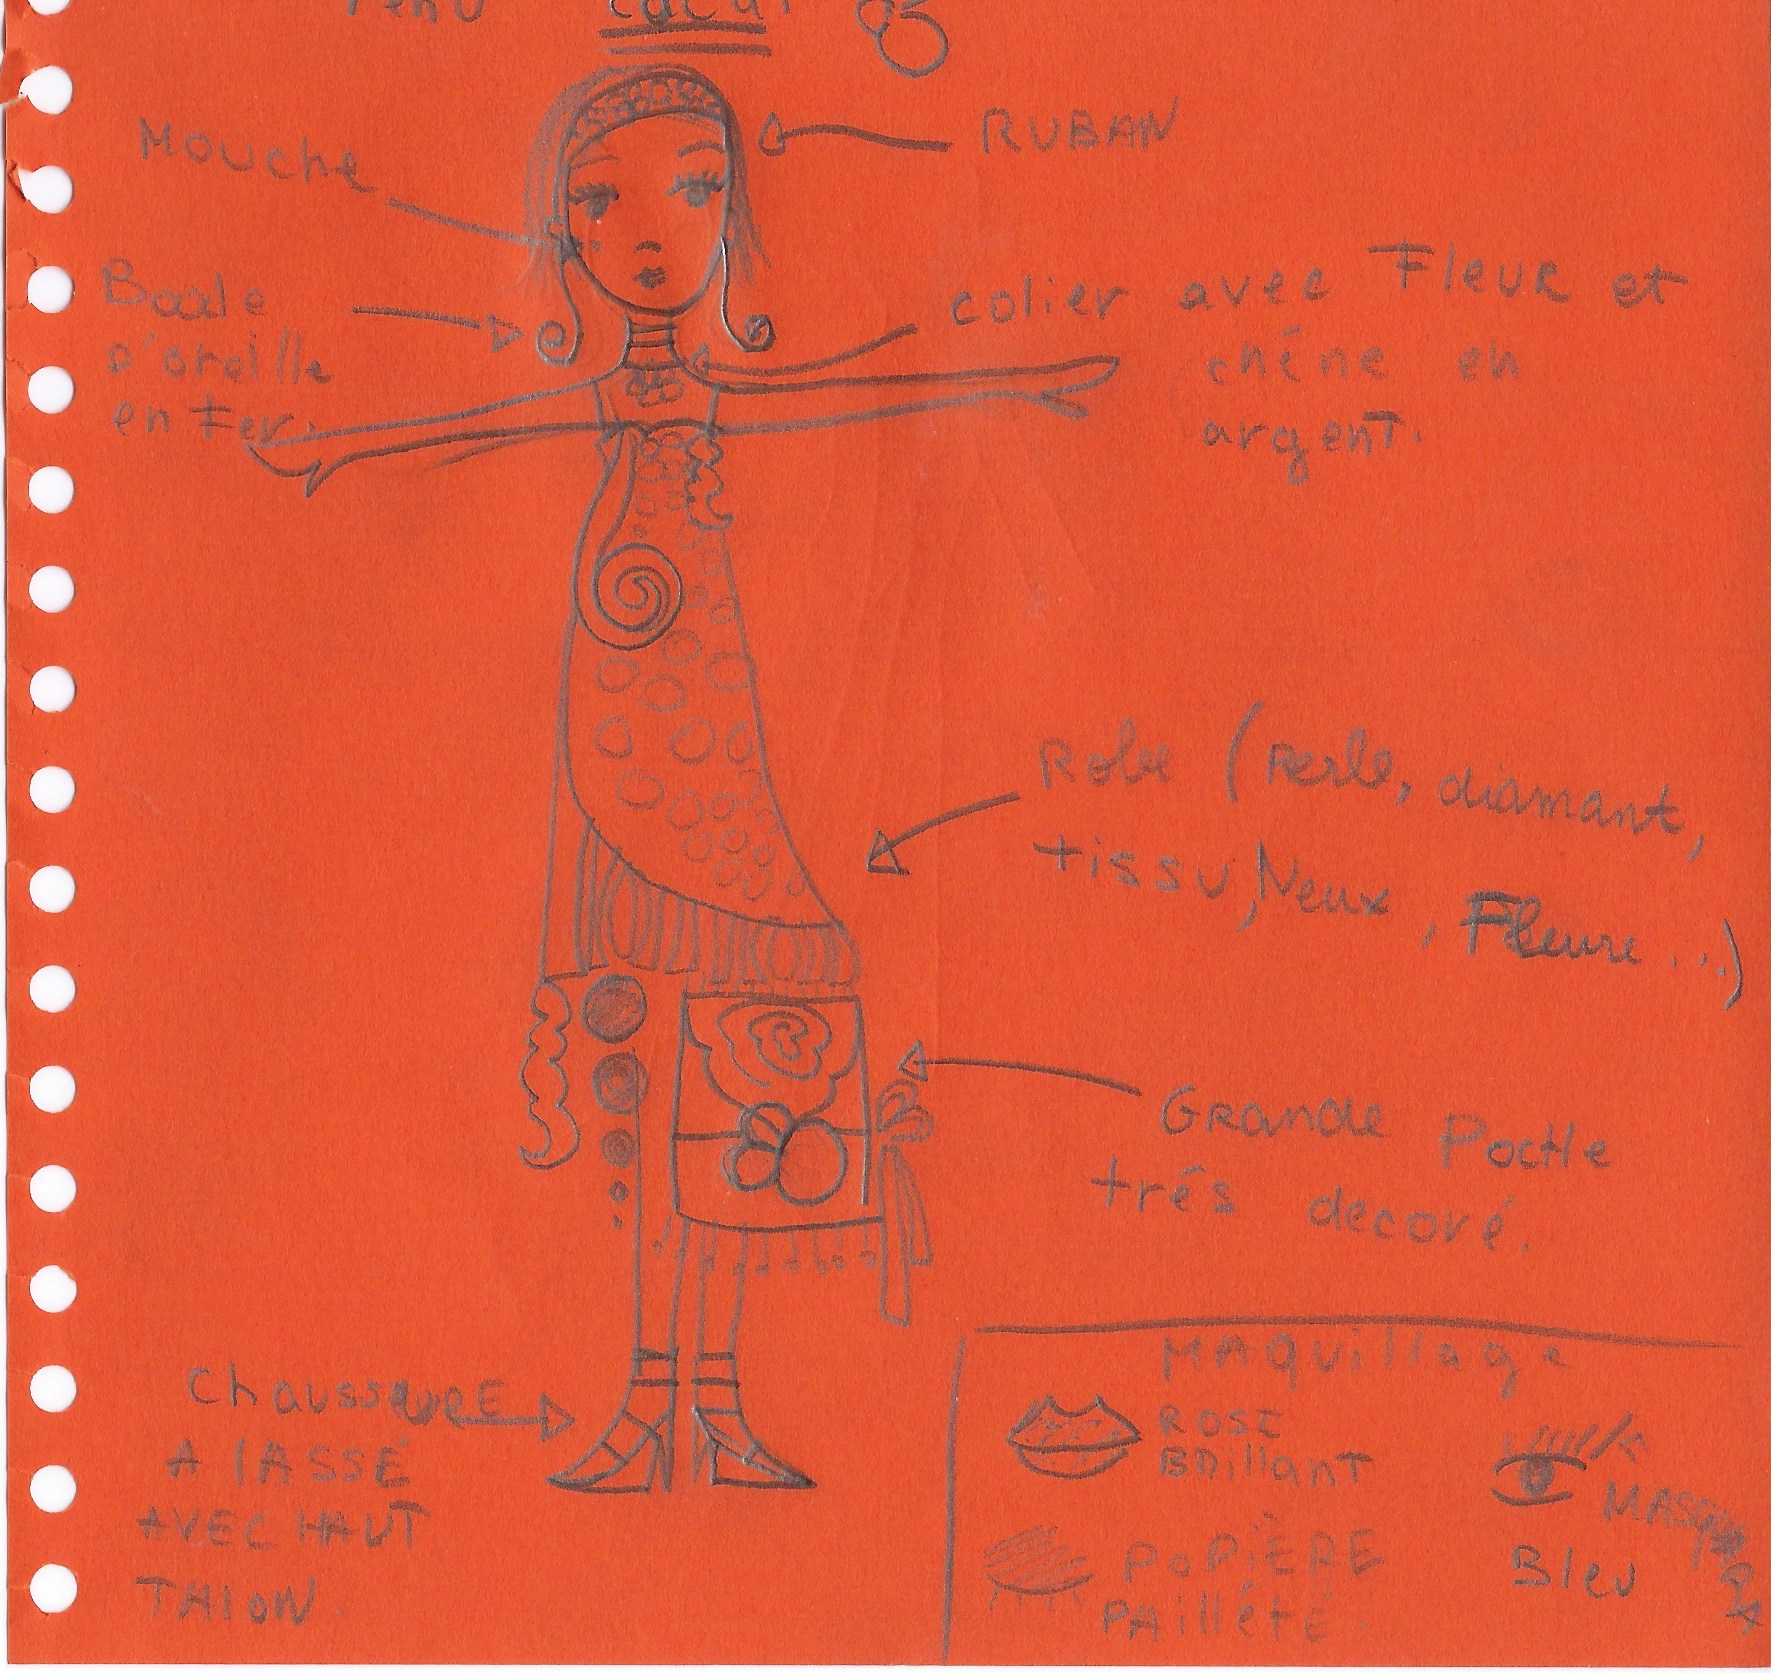 Mouche
RUBAN
d'oreille
en Fer.
colier avec Fleur et
chéne en
argent.
Robe (Perle, diamant,
tissu, Neux, Fleure...)
GRande PocHe
trés decoré.
ChaussURE
A lASSÉ
AVEC HAUT
TAloN.
MAquillage
ROSE
BRillanT
MASq
Bleu
PoPiÈRE
PAillétÉ.